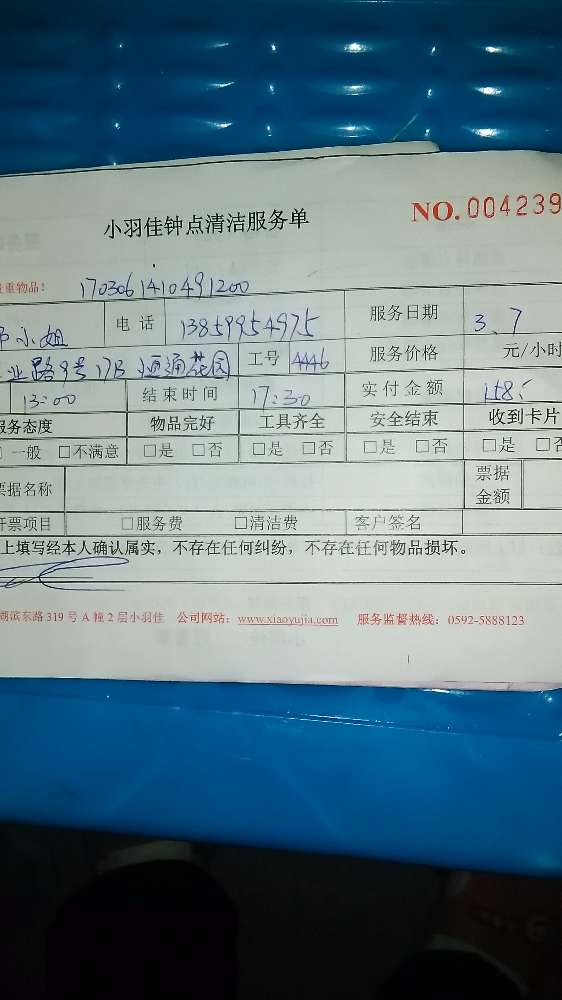 小羽佳钟点清洁服务单
NO. 004239
重物品！
1703061410491200
小姐 电话 13859954975 服务日期 3.7
业路9号17B 通花园 工号 4446 服务价格 元/小时
13:00 结束时间 17:30 实付金额 158.
服务态度 物品完好 工具齐全 安全结束 收到卡片
一般 □不满意 □是 □否 □是 □否 □是 □否 □是 □
票据名称 票据金额
开票项目 □服务费 □清洁费 客户签名
上填写经本人确认属实，不存在任何纠纷，不存在任何物品损坏。
湖滨东路319号A幢2层小羽佳 公司网站：www.xiaoyujia.com 服务监督热线：0592-5888123